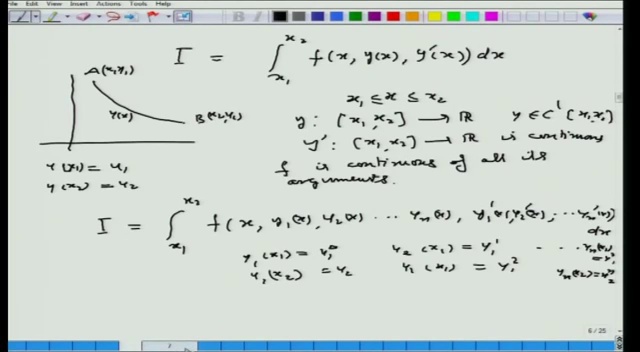 File Edit View Insert Actions Tools Help
I = ∫_{x_1}^{x_2} f(x, y(x), y'(x)) dx
A(x_1 y_1)
y(x)
B(x_2, y_2)
x_1 ≤ x ≤ x_2
y : [x_1, x_2] → ℝ y ∈ C' [x_1 x_2]
y' : [x_1, x_2] → ℝ is continuous
f is continuous of all its
arguments.
y(x_1) = y_1
y(x_2) = y_2
I = ∫_{x_1}^{x_2} f(x, y_1(x), y_2(x) ⋯ y_n(x), y_1'(x), y_2'(x), ⋯ y_n'(x)) dx
y_1(x_1) = y_1^0 y_2(x_1) = y_1' ⋯ y_n(x_1)
y_1(x_2) = y_2 y_2(x_1) = y_1^2 y_n(x_2) = y_2^n
6 / 25